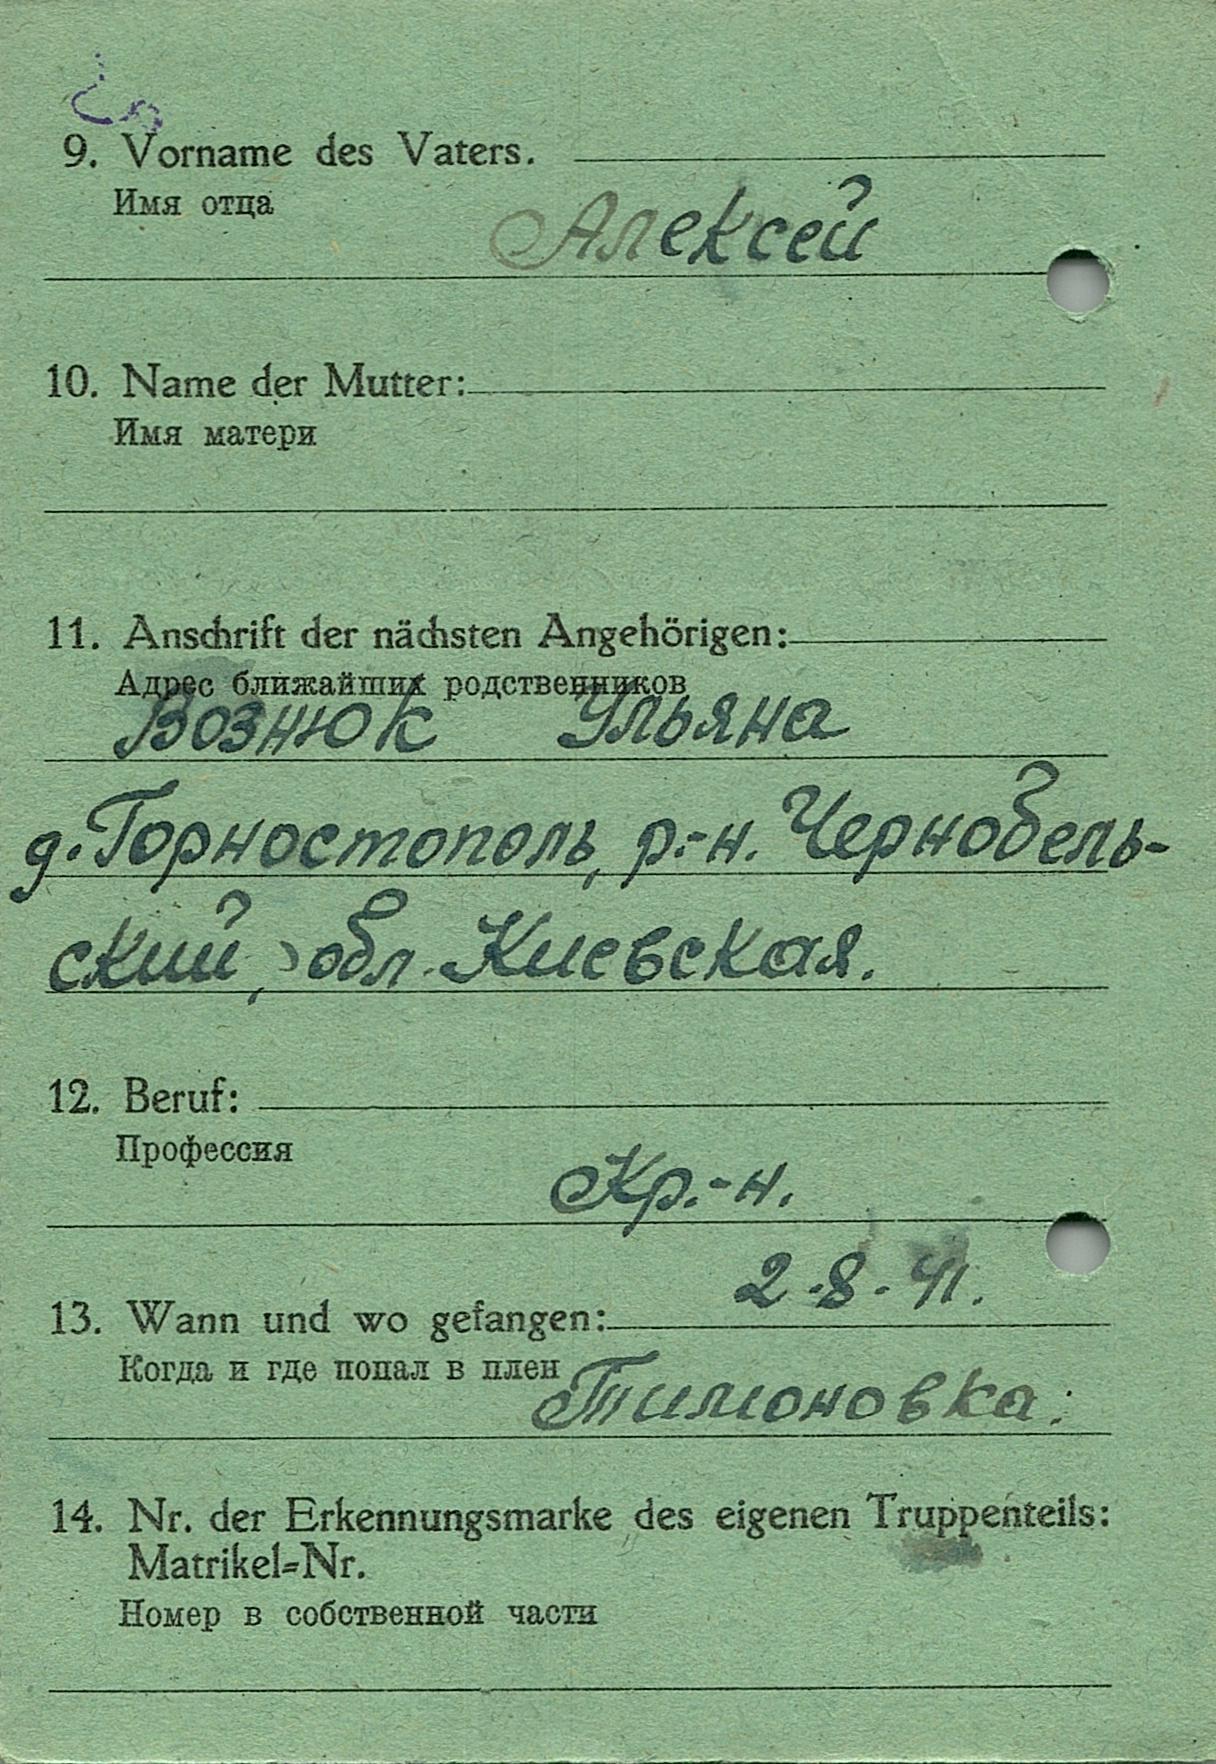 9. Vorname des Vaters.
Имя отца
Алексей
10. Name der Mutter:
Имя матери
11. Anschrift der nächsten Angehörigen:
Адрес ближайших родственников
Вознюк Ульяна
д. Горностополь, р.-н. Чернобель-
ский, обл. Киевская.
12. Beruf:
Профессия
Кр.-н.
2.8.41.
13. Wann und wo gefangen:
Когда и где попал в плен
Тимоновка.
14. Nr. der Erkennungsmarke des eigenen Truppenteils:
Matrikel=Nr.
Номер в собственной части